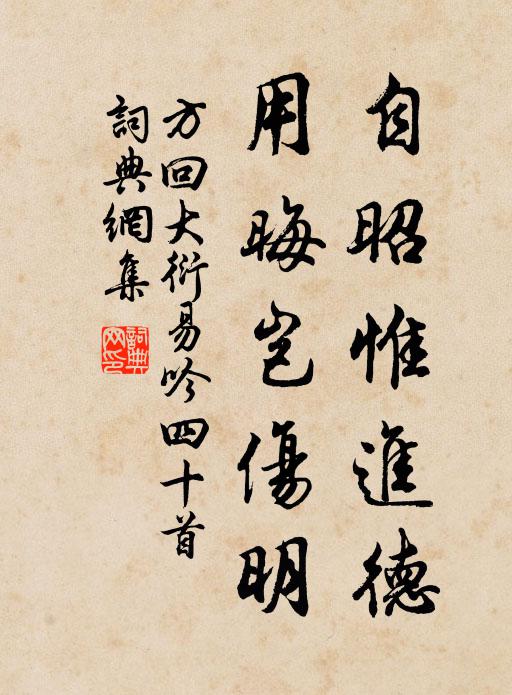 自昭惟進德
用晦豈傷明
方回大衍易吟四十首
詞典網集
詞典網印